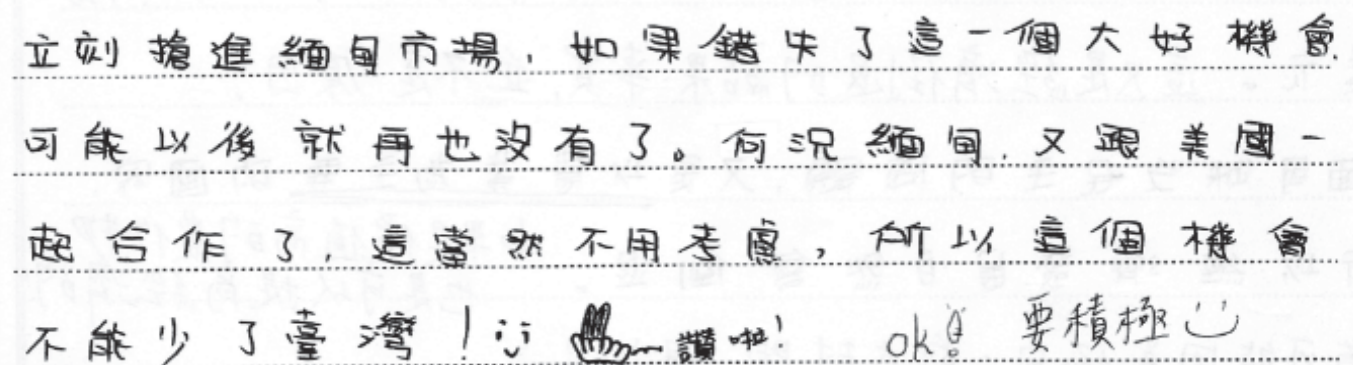 立刻搶進緬甸市場，如果錯失了這一個大好機會.
可能以後就再也沒有了。何況緬甸，又跟美國一
起合作了，這當然不用考慮，所以這個機會
不能少了臺灣！讚啦! ok! 要積極